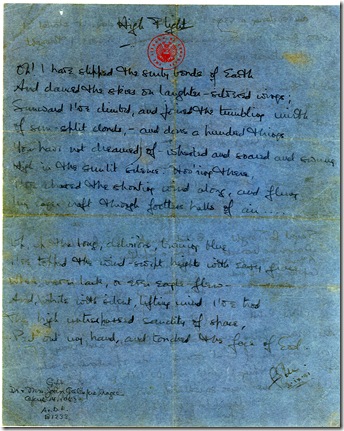 High Flight
Oh! I have slipped the surly bonds of Earth
And danced the skies on laughter-silvered wings;
Sunward I've climbed, and joined the tumbling mirth
of sun-split clouds, - and done a hundred things
You have not dreamed of - wheeled and soared and swung
High in the sunlit silence. Hov'ring there,
I've chased the shouting wind along, and flung
My eager craft through footless halls of air....
Up, up the long, delirious, burning blue
I've topped the wind-swept heights with easy grace
Where never lark, or even eagle flew -
And, while with silent, lifting mind I've trod
The high untrespassed sanctity of space,
Put out my hand, and touched the face of God.
Gift
Dr. + Mrs. John Gillespie Magee
April 14, 1943